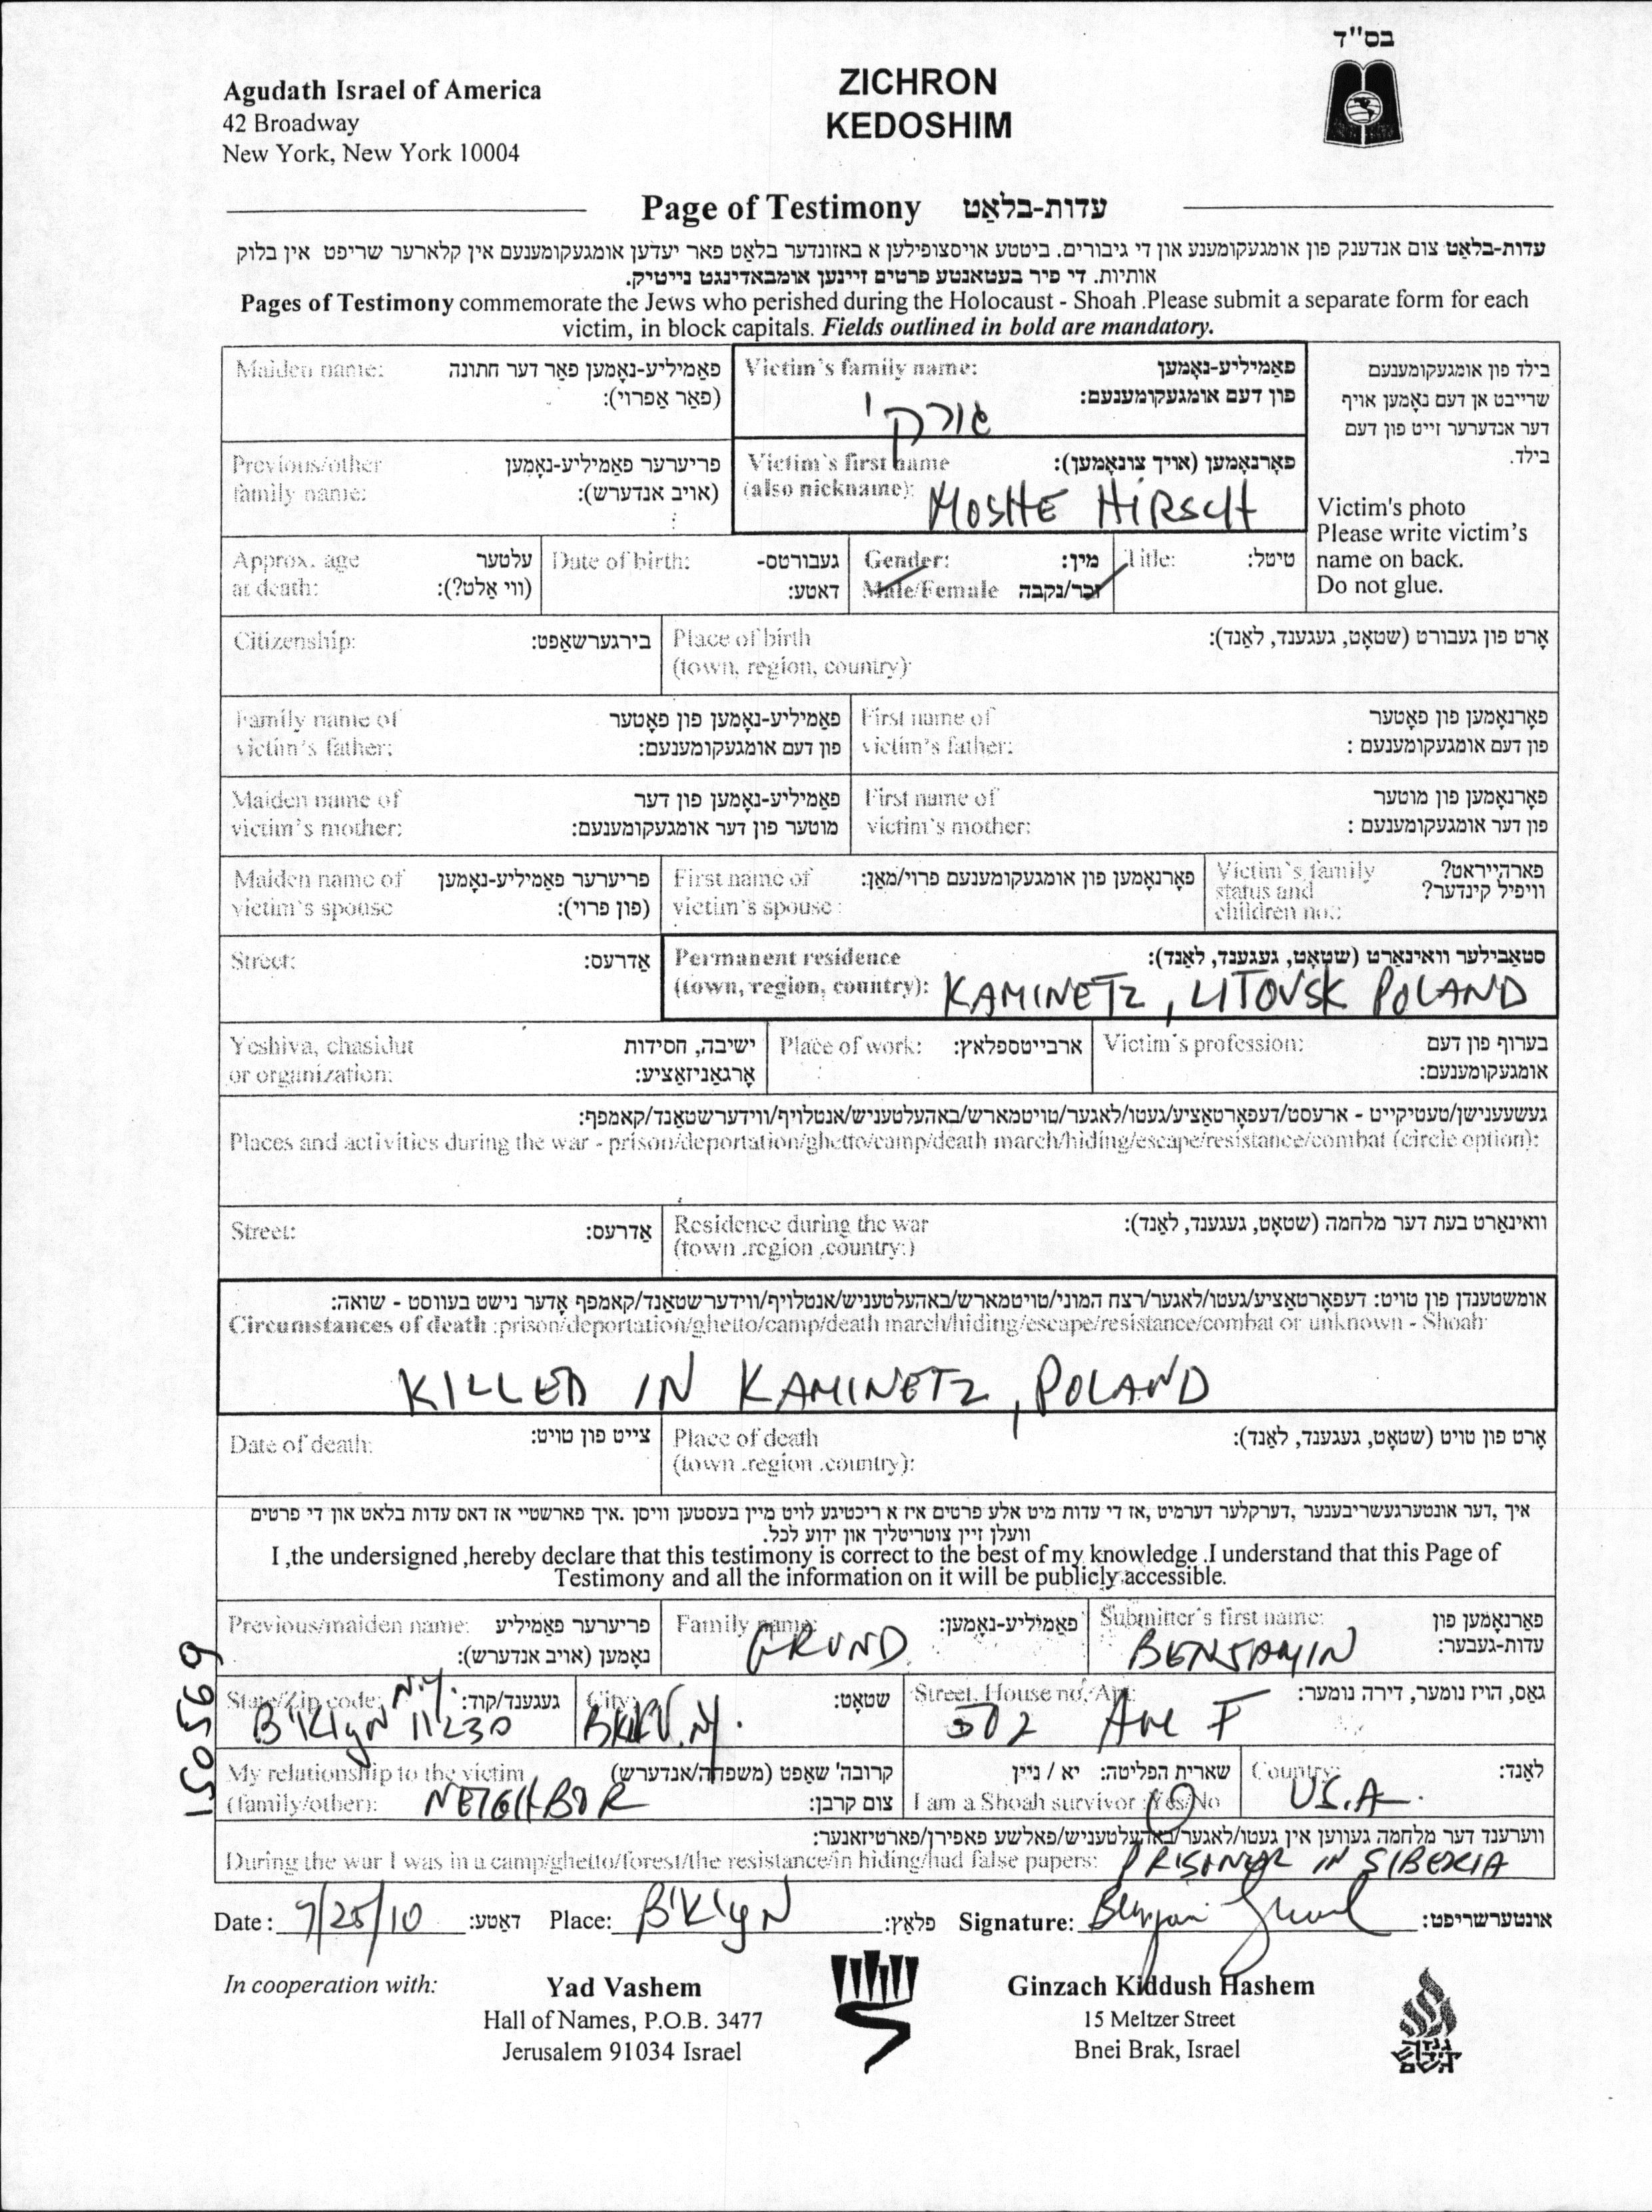 בס"ד
Agudath Israel of America
42 Broadway
New York, New York 10004
ZICHRON
KEDOSHIM
Page of Testimony עדות-בלאַט
עדות-בלאַט צום אנדענק פון אומגעקומענע און די גיבורים. ביטטע אויסצופילען א באזונדער בלאַט פאר יעדען אומגעקומענעם אין קלארער שריפט אין בלוק
אותיות. די פיר בעטאנטע פרטים זיינען אומבאדינגט נייטיק.
Pages of Testimony commemorate the Jews who perished during the Holocaust - Shoah .Please submit a separate form for each
victim, in block capitals. Fields outlined in bold are mandatory.
Maiden name: פאַמיליע-נאָמען פאַר דער חתונה
(פאַר אַפרוי):
Victim's family name: פאַמיליע-נאָמען
פון דעם אומגעקומענעם:
גורקי
בילד פון אומגעקומענעם
שרייבט אן דעם נאָמען אויף
דער אנדערער זייט פון דעם
בילד.
Victim's photo
Please write victim's
name on back.
Do not glue.
Previous/other פריערער פאַמיליע-נאָמען
family name: (אויב אנדערש):
Victim's first name פאָרנאָמען (אויך צונאָמען):
(also nickname): MOSHE HIRSCH
Approx. age עלטער
at death: (ווי אַלט?):
Date of birth: געבורטס-
דאטע:
Gender: מין:
Male/Female זכר/נקבה
Title: טיטל:
Citizenship: בירגערשאַפט:
Place of birth אָרט פון געבורט (שטאָט, געגענד, לאַנד):
(town, region, country):
Family name of פאַמיליע-נאָמען פון פאָטער
victim's father: פון דעם אומגעקומענעם:
First name of פאָרנאָמען פון פאָטער
victim's father: פון דעם אומגעקומענעם :
Maiden name of פאַמיליע-נאָמען פון דער
victim's mother: מוטער פון דער אומגעקומענעם:
First name of פאָרנאָמען פון מוטער
victim's mother: פון דער אומגעקומענעם :
Maiden name of פריערער פאַמיליע-נאָמען
victim's spouse (פון פרוי):
First name of פאָרנאָמען פון אומגעקומענעם פרוי/מאַן:
victim's spouse :
Victim's family פארהייראט?
status and וויפיל קינדער?
children no.:
Street: אַדרעס:
Permanent residence סטאַבילער וואינארט (שטאָט, געגענד, לאַנד):
(town, region, country): KAMINETZ, LITOVSK POLAND
Yeshiva, chasidut ישיבה, חסידות
or organization: אָרגאַניזאַציע:
Place of work: ארבייטספלאץ:
Victim's profession: בערוף פון דעם
אומגעקומענעם:
געשעענישן/טעטיקייט - ארעסט/דעפאָרטאַציע/געטו/לאגער/טויטמארש/באהעלטעניש/אנטלויף/ווידערשטאַנד/קאמפף:
Places and activities during the war - prison/deportation/ghetto/camp/death march/hiding/escape/resistance/combat (circle option):
Street: אַדרעס:
Residence during the war וואינארט בעת דער מלחמה (שטאָט, געגענד, לאַנד):
(town .region .country:)
אומשטענדן פון טויט: דעפאָרטאַציע/געטו/לאגער/רצח המוני/טויטמארש/באהעלטעניש/אנטלויף/ווידערשטאַנד/קאמפף אָדער נישט בעווסט - שואה:
Circumstances of death :prison/deportation/ghetto/camp/death march/hiding/escape/resistance/combat or unknown - Shoah
KILLED IN KAMINETZ, POLAND
Date of death: צייט פון טויט:
Place of death אָרט פון טויט (שטאָט, געגענד, לאַנד):
(town .region .country):
איך ,דער אונטערגעשריבענער ,דערקלער דערמיט ,אז די עדות מיט אלע פרטים איז א ריכטיגע לויט מיין בעסטען וויסן .איך פארשטיי אז דאס עדות בלאט און די פרטים
וועלן זיין צוטריטליך און ידוע לכל.
I ,the undersigned ,hereby declare that this testimony is correct to the best of my knowledge .I understand that this Page of
Testimony and all the information on it will be publicly accessible.
Previous/maiden name: פריערער פאַמיליע
נאָמען (אויב אנדערש):
Family name: פאַמיליע-נאָמען:
GRUND
Submitter's first name: פאָרנאָמען פון
עדות-געבער:
BENJAMIN
State/Zip code: געגענד/קוד:
N.Y.
B'klyn 11230
City: שטאָט:
BKLY. N.Y.
Street, House no./Apt: גאַס, הויז נומער, דירה נומער:
502 Ave F
My relationship to the victim קרובה' שאַפט (משפחה/אנדערש)
(family/other): צום קרבן:
NEIGHBOR
שארית הפליטה: יא / ניין
I am a Shoah survivor :Yes/No
Country: לאַנד:
U.S.A.
ווערענד דער מלחמה געווען אין געטו/לאגער/באהעלטעניש/פאלשע פאפירן/פארטיזאנער:
During the war I was in a camp/ghetto/forest/the resistance/in hiding/had false papers: PRISONER IN SIBERIA
Date : 7/25/10 דאַטע: Place: B'klyN פלאַץ: Signature: Benjamin Grund אונטערשריפט:
In cooperation with:
Yad Vashem
Hall of Names, P.O.B. 3477
Jerusalem 91034 Israel
Ginzach Kiddush Hashem
15 Meltzer Street
Bnei Brak, Israel
גנזך
קידוש
השם
150569